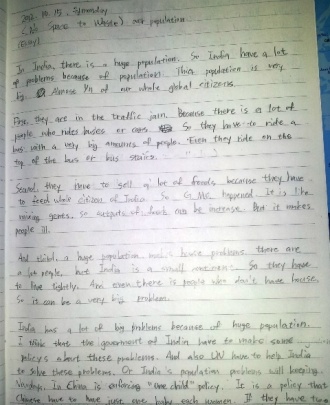 Saturday
(No Space to Waste) our population
(Essay)
In India, there is a huge population. So India have a lot
of problems because of population! This population is very
big. Almost of our whole global citizens.
First, they are in the traffic jam. Because there is a lot of
people who rides buses or cars. So they have to ride a
bus with a very big amounts of people. Even they ride on the
top of the bus or bus stairs.
Second, they have to sell a lot of foods because they have
to feed whole citizen of India. So GMC happened. It is like
genes, so outputs of foods can be increase. But it makes
people ill.
And third, a huge population house problems there are
a lot people, but India is a small So they have
to live tightly. And even there is people who don't have house.
So it can be a very big problem.
India has a lot of big problems because of huge population.
I think that the goverment of India have to make some
policy's about these problems. And also UN have to help India
to solve these problems. Or India's population problems will keeping
In China is enforcing "one child" policy. It is a policy that
Chinese have to have just one baby each women. If they have two